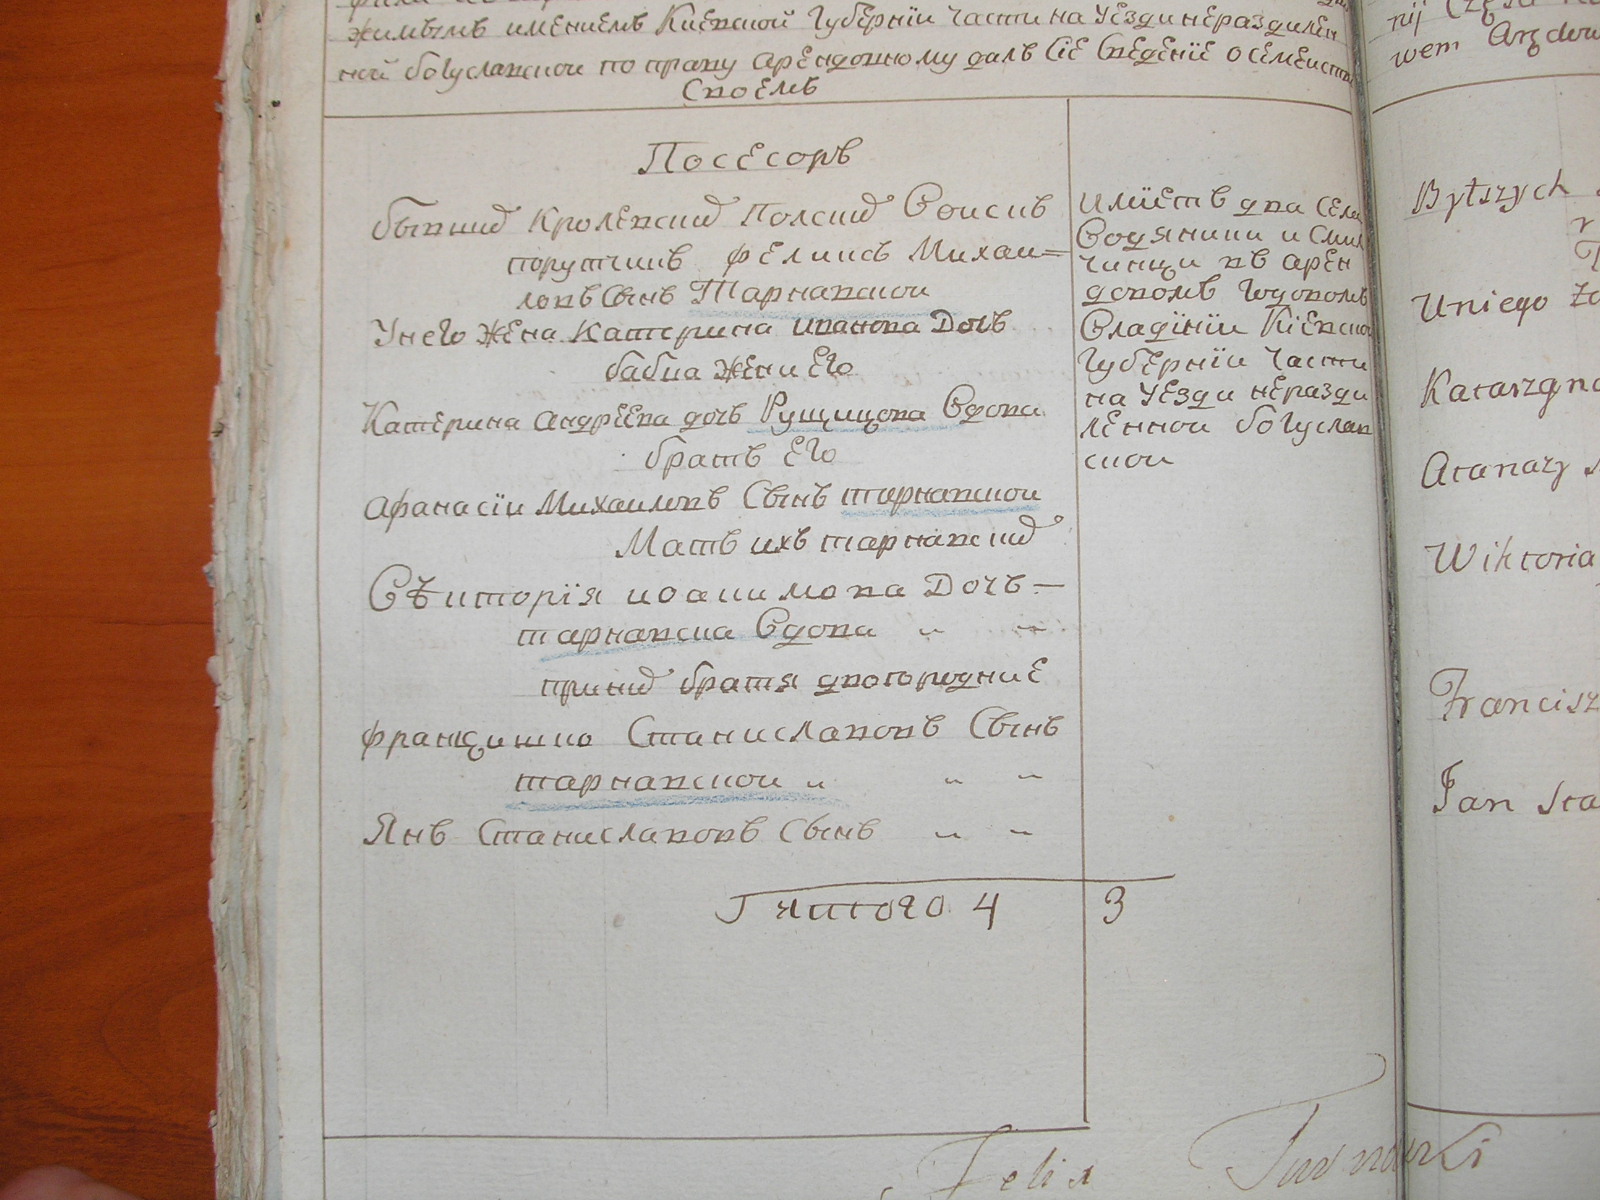 жимымъ имениемъ Киевской Губернїи части на Уезди нераздилен
ной богуславской по праву арендовному далъ сїе сведенїе о семеистви
своемъ
Посесоръ
бывшид Кролевскид Полскид Воискъ
поручникъ феликсъ Михаи=
ловъ Сынъ Тарнавской
У него Жена Катерина иванова Дочъ
бабка жени Его
Катерина андреева дочъ Рущицова Вдова
братъ Его
афанасїи Михаиловъ Сынъ тарнавской
Мать ихъ тарнавскид
Вѣкторїя иоакимова Дочъ —
тарнавска Вдова " "
принид братя двогородние
францишко Станиславовъ Сынъ
тарнавской " " "
Янъ Станиславовъ Сынъ " "
Гятого 4 3
имїетъ два села
Водяники и
чинци въ арен
довомъ годовомъ
Владїнїи Кїевско
Губернїи Части
на Уезди неразди
ленной богуслав
ской
Felix Tarnawski
wem Arędow
Byłszych
Uniego
Katarzyna
Atanazy
Wiktoria
Francisz
Jan Sta